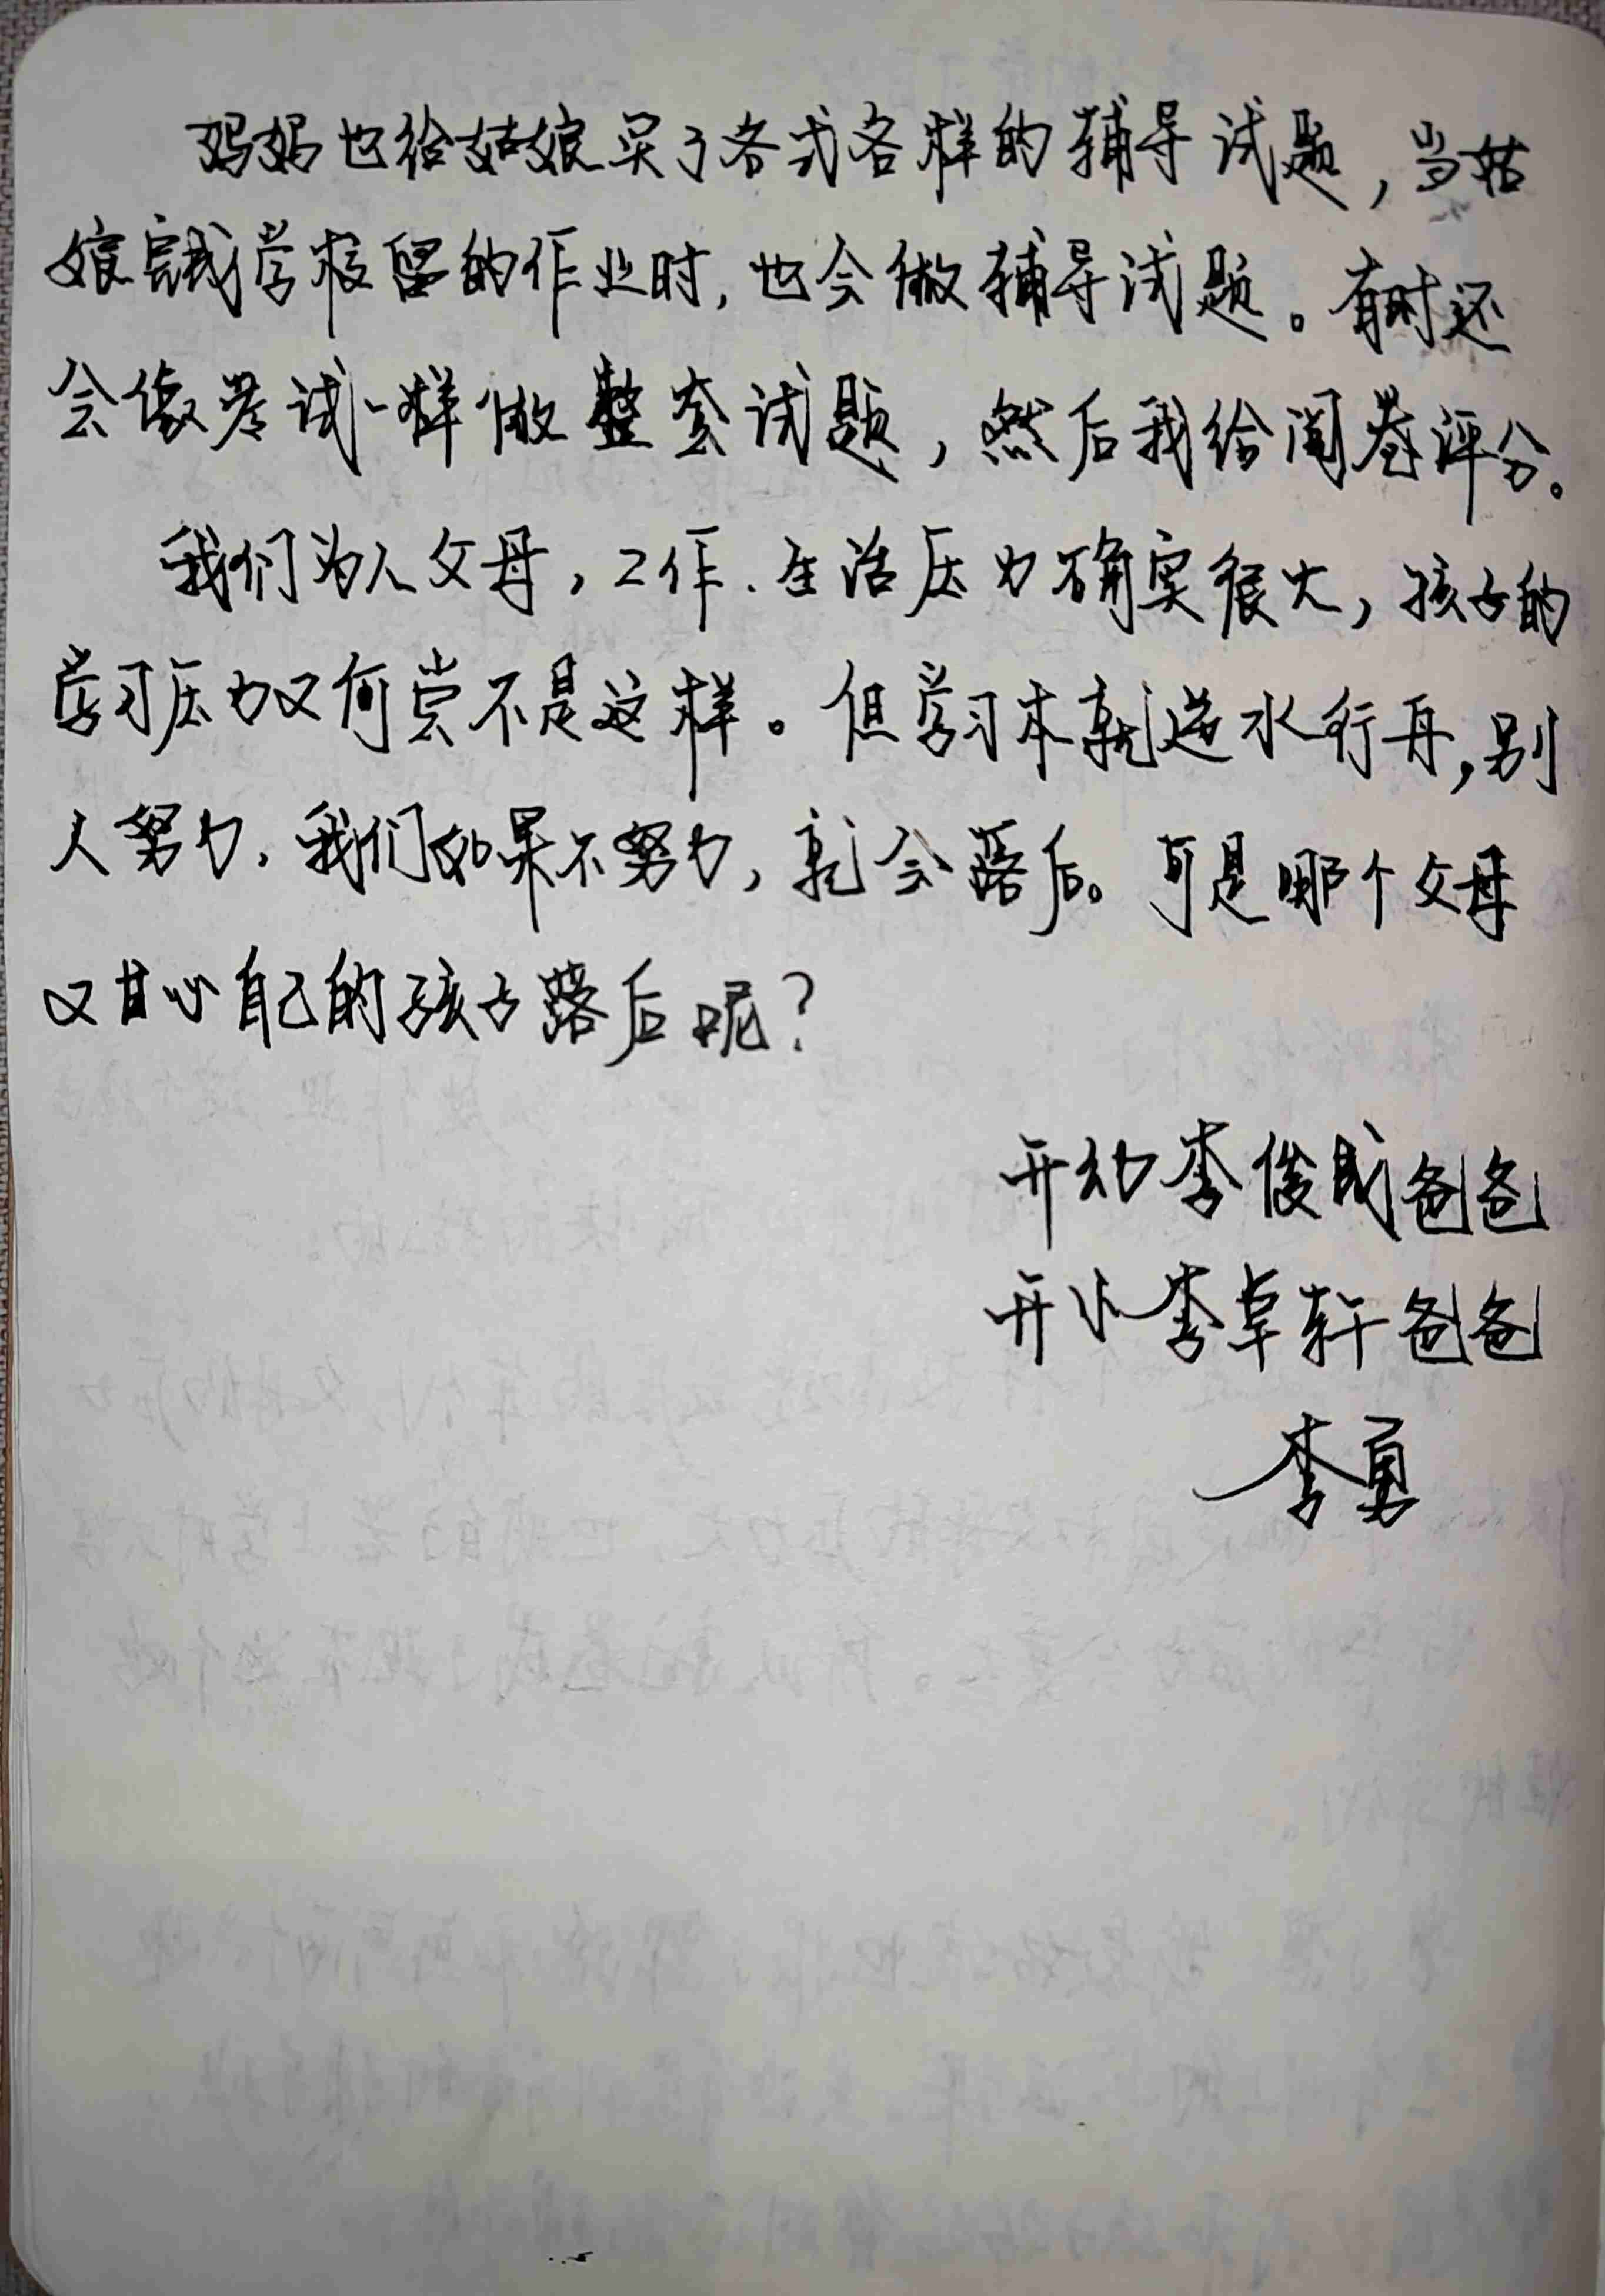 妈妈也给姑娘买了各式各样的辅导试题，当姑
娘完成学校留的作业时，也会做辅导试题。有时还
会像考试一样做整套试题，然后我给阅卷评分。
我们为人父母，工作、生活压力确实很大，孩子的
学习压力又何尝不是这样。但学习本就逆水行舟，别
人努力，我们如果不努力，就会落后。可是哪个父母
又甘心自己的孩子落后呢？
开幼李俊成爸爸
开小李卓轩爸爸
李勇